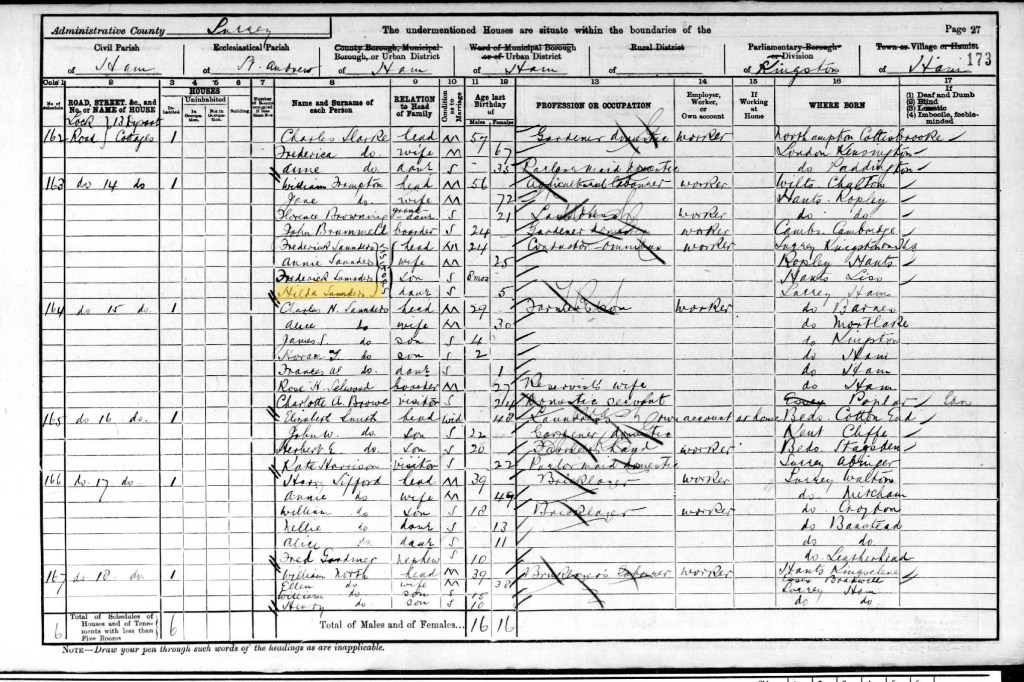 Administrative County Surrey The undermentioned Houses are situate within the boundaries of the Page 27
Civil Parish Ecclesiastical Parish County Borough, Municipal Borough, or Urban District Ward of Municipal Borough or of Urban District Rural District Parliamentary Borough or Division Town or Village or Hamlet
of Ham of St. Andrew of Ham of Ham of of Kingston of Ham 173
Cols 1 2 3 4 5 6 7 8 9 10 11 12 13 14 15 16 17
ROAD, STREET, &c., and No. or NAME of HOUSE HOUSES Inhabited Uninhabited In Occupation Not in Occupation Building Name and Surname of each Person RELATION to Head of Family Condition as to Marriage Age last Birthday of Males Females PROFESSION OR OCCUPATION Employer, Worker, or Own account If Working at Home WHERE BORN (1) Deaf and Dumb (2) Blind (3) Lunatic (4) Imbecile, feeble-minded
162 Lock Road 13 Cottages 1 Charles head M 57 Gardener domestic worker Northampton Cottesbrooke
Frederica do. wife M 67 London Kensington
Anne do. daur S 35 Parlor maid domestic do Paddington
163 do 14 do 1 William Frampton head M 56 Agricultural labourer worker Wilts.
Jane do wife M 72 Hants. Ropley
Florence Browning grand-daur S 21 worker do do
John Brummell boarder S 24 Gardener domestic worker Cambs. Cambridge
Frederick Saunders head M 24 Conductor omnibus worker Surrey Kingston on
Annie Saunders wife M 25 Ropley Hants
Frederick Saunders son S 8 mos Hants Liss
Hilda Saunders daur S 5 Surrey Ham
164 do 15 do. 1 Charles H. Saunders head M 29 worker do Barnes
Alice do wife M 30 do Mortlake
James S. do son S 4 do Kingston
do son S 2 do Ham
Frances do. daur S 1 do Ham
Rose H. Selwood boarder M 27 Reservists wife do Ham
Charlotte A. visitor S 24 Domestic servant Essex Poplar
165 do 16 do. 1 Elizabeth Smith head wid 48 Laundress own account at home Beds. Cotton End
John W. do. son S 22 Gardener domestic Kent Cliffe
Herbert E. do son S 20 worker Beds. Stagsden
Kate Harrison visitor S 22 Parlor maid domestic Surrey Abinger
166 do. 17 do. 1 Harry head M 39 Bricklayer worker Surrey Walton
Annie do wife M 49 do Mitcham
William do son S 18 Bricklayer worker do Croydon
Nellie do daur S 13 do Banstead
Alice do daur S 11 do do
Fred Gardiner nephew S 10 do. Leatherhead
167 do 18 do. 1 William North head M 39 Bricklayer's labourer worker Hants Kingsclere
Ellen do wife M 38 Essex Bradwell
William do son S 15 Surrey Ham
Henry do son S 10 do do
6 Total of Schedules of Houses and of Tenements with less than Five Rooms 6 Total of Males and of Females... 16 16
NOTE—Draw your pen through such words of the headings as are inapplicable.